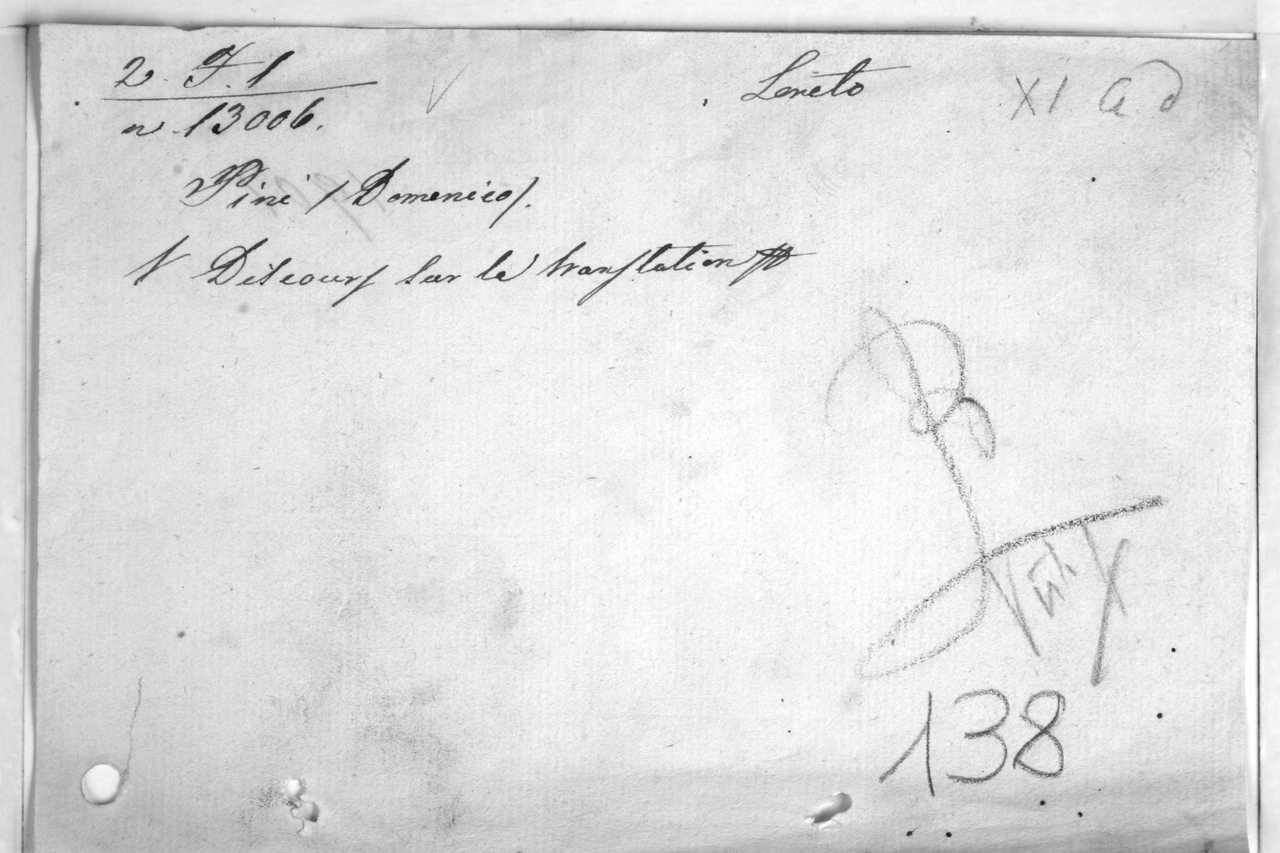 2. F. 1
Loreto
XI a. d
n. 13006.
Pini / Domenico /.
V Discours sur la translation
138